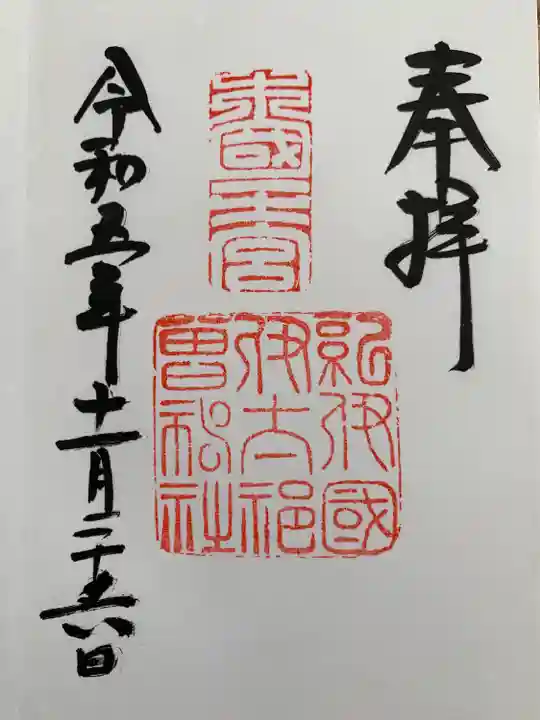 奉拝
木國一宮
紀伊國
伊太祁
曽神社
令和五年十一月二十六日